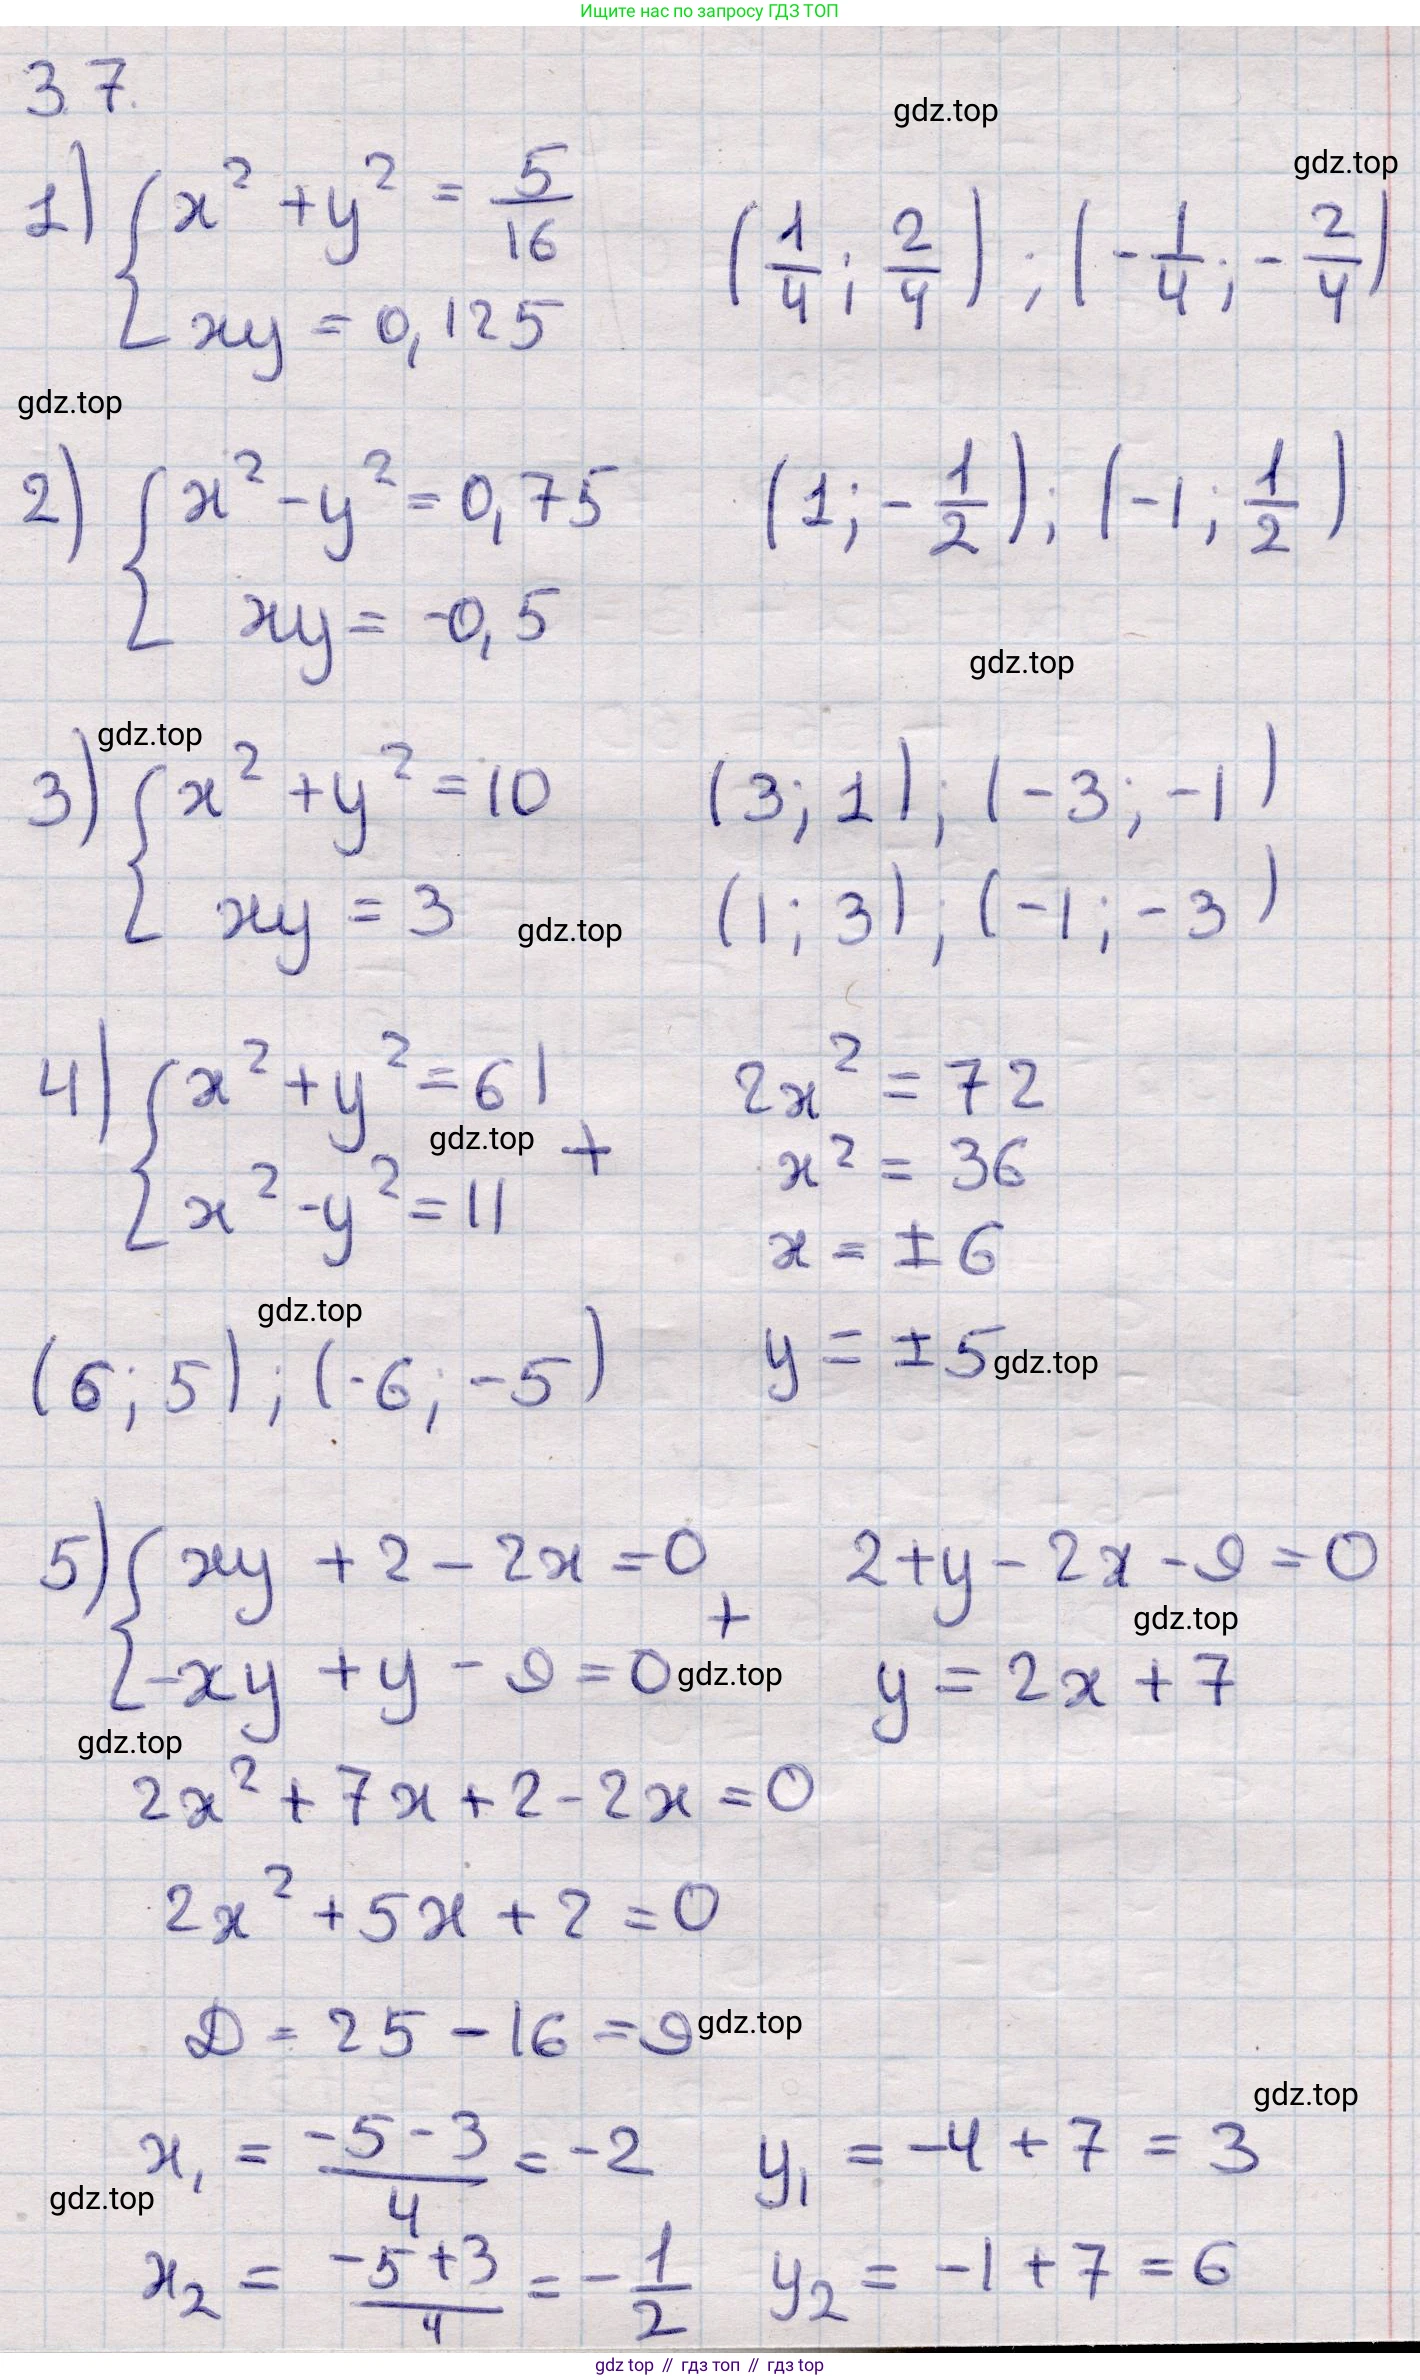 Ищите нас по запросу ГДЗ ТОП
37.
gdz.top
gdz.top
1) { x² + y² = 5/16
(1/4; 2/4); (-1/4; -2/4)
xy = 0,125
gdz.top
2) { x² - y² = 0,75
(1; -1/2); (-1; 1/2)
xy = -0,5
gdz.top
gdz.top
3) { x² + y² = 10
(3; 1); (-3; -1)
xy = 3
gdz.top
(1; 3); (-1; -3)
4) { x² + y² = 61
2x² = 72
gdz.top
+
x² - y² = 11
x² = 36
x = ±6
gdz.top
y = ±5
gdz.top
(6; 5); (-6; -5)
5) { xy + 2 - 2x = 0
+
2 + y - 2x - 9 = 0
gdz.top
-xy + y - 9 = 0
gdz.top
y = 2x + 7
gdz.top
2x² + 7x + 2 - 2x = 0
2x² + 5x + 2 = 0
D = 25 - 16 = 9
gdz.top
gdz.top
x₁ = (-5 - 3)/4 = -2
y₁ = -4 + 7 = 3
gdz.top
x₂ = (-5 + 3)/4 = -1/2
y₂ = -1 + 7 = 6
gdz.top // гдз топ // гдз top